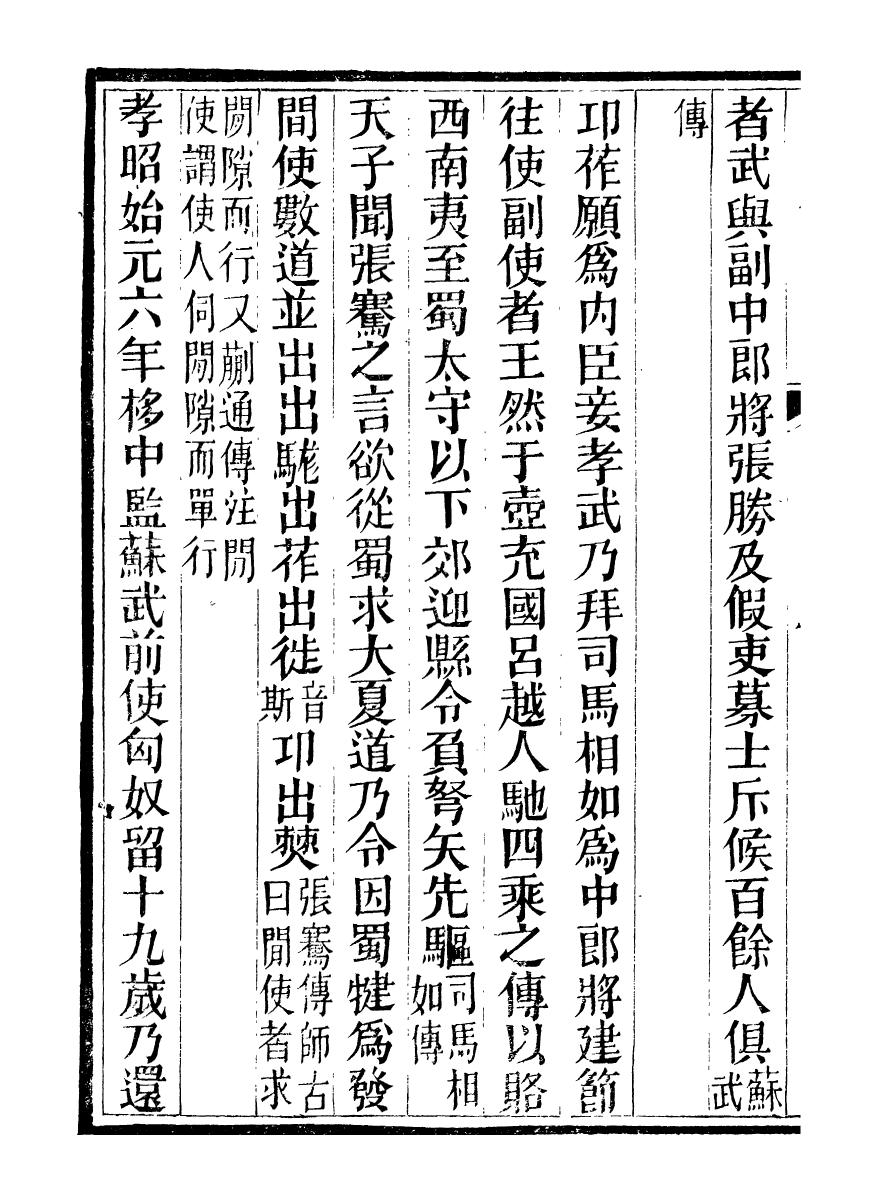 者武與副中郎將張勝及假吏募士斥候百餘人俱蘇武
傳
卭莋願爲内臣妾孝武乃拜司馬相如爲中郎將建節
往使副使者王然于壺充國呂越人馳四乘之傳以賂
西南夷至蜀太守以下郊迎縣令負弩矢先驅司馬相如傳
天子聞張騫之言欲從蜀求大夏道乃令因蜀犍爲發
間使數道並出出駹出莋出徙音斯卭出僰張騫傳師古曰閒使者求
閒隙而行又蒯通傳注閒使謂使人伺閒隙而單行
孝昭始元六年栘中監蘇武前使匈奴留十九歲乃還